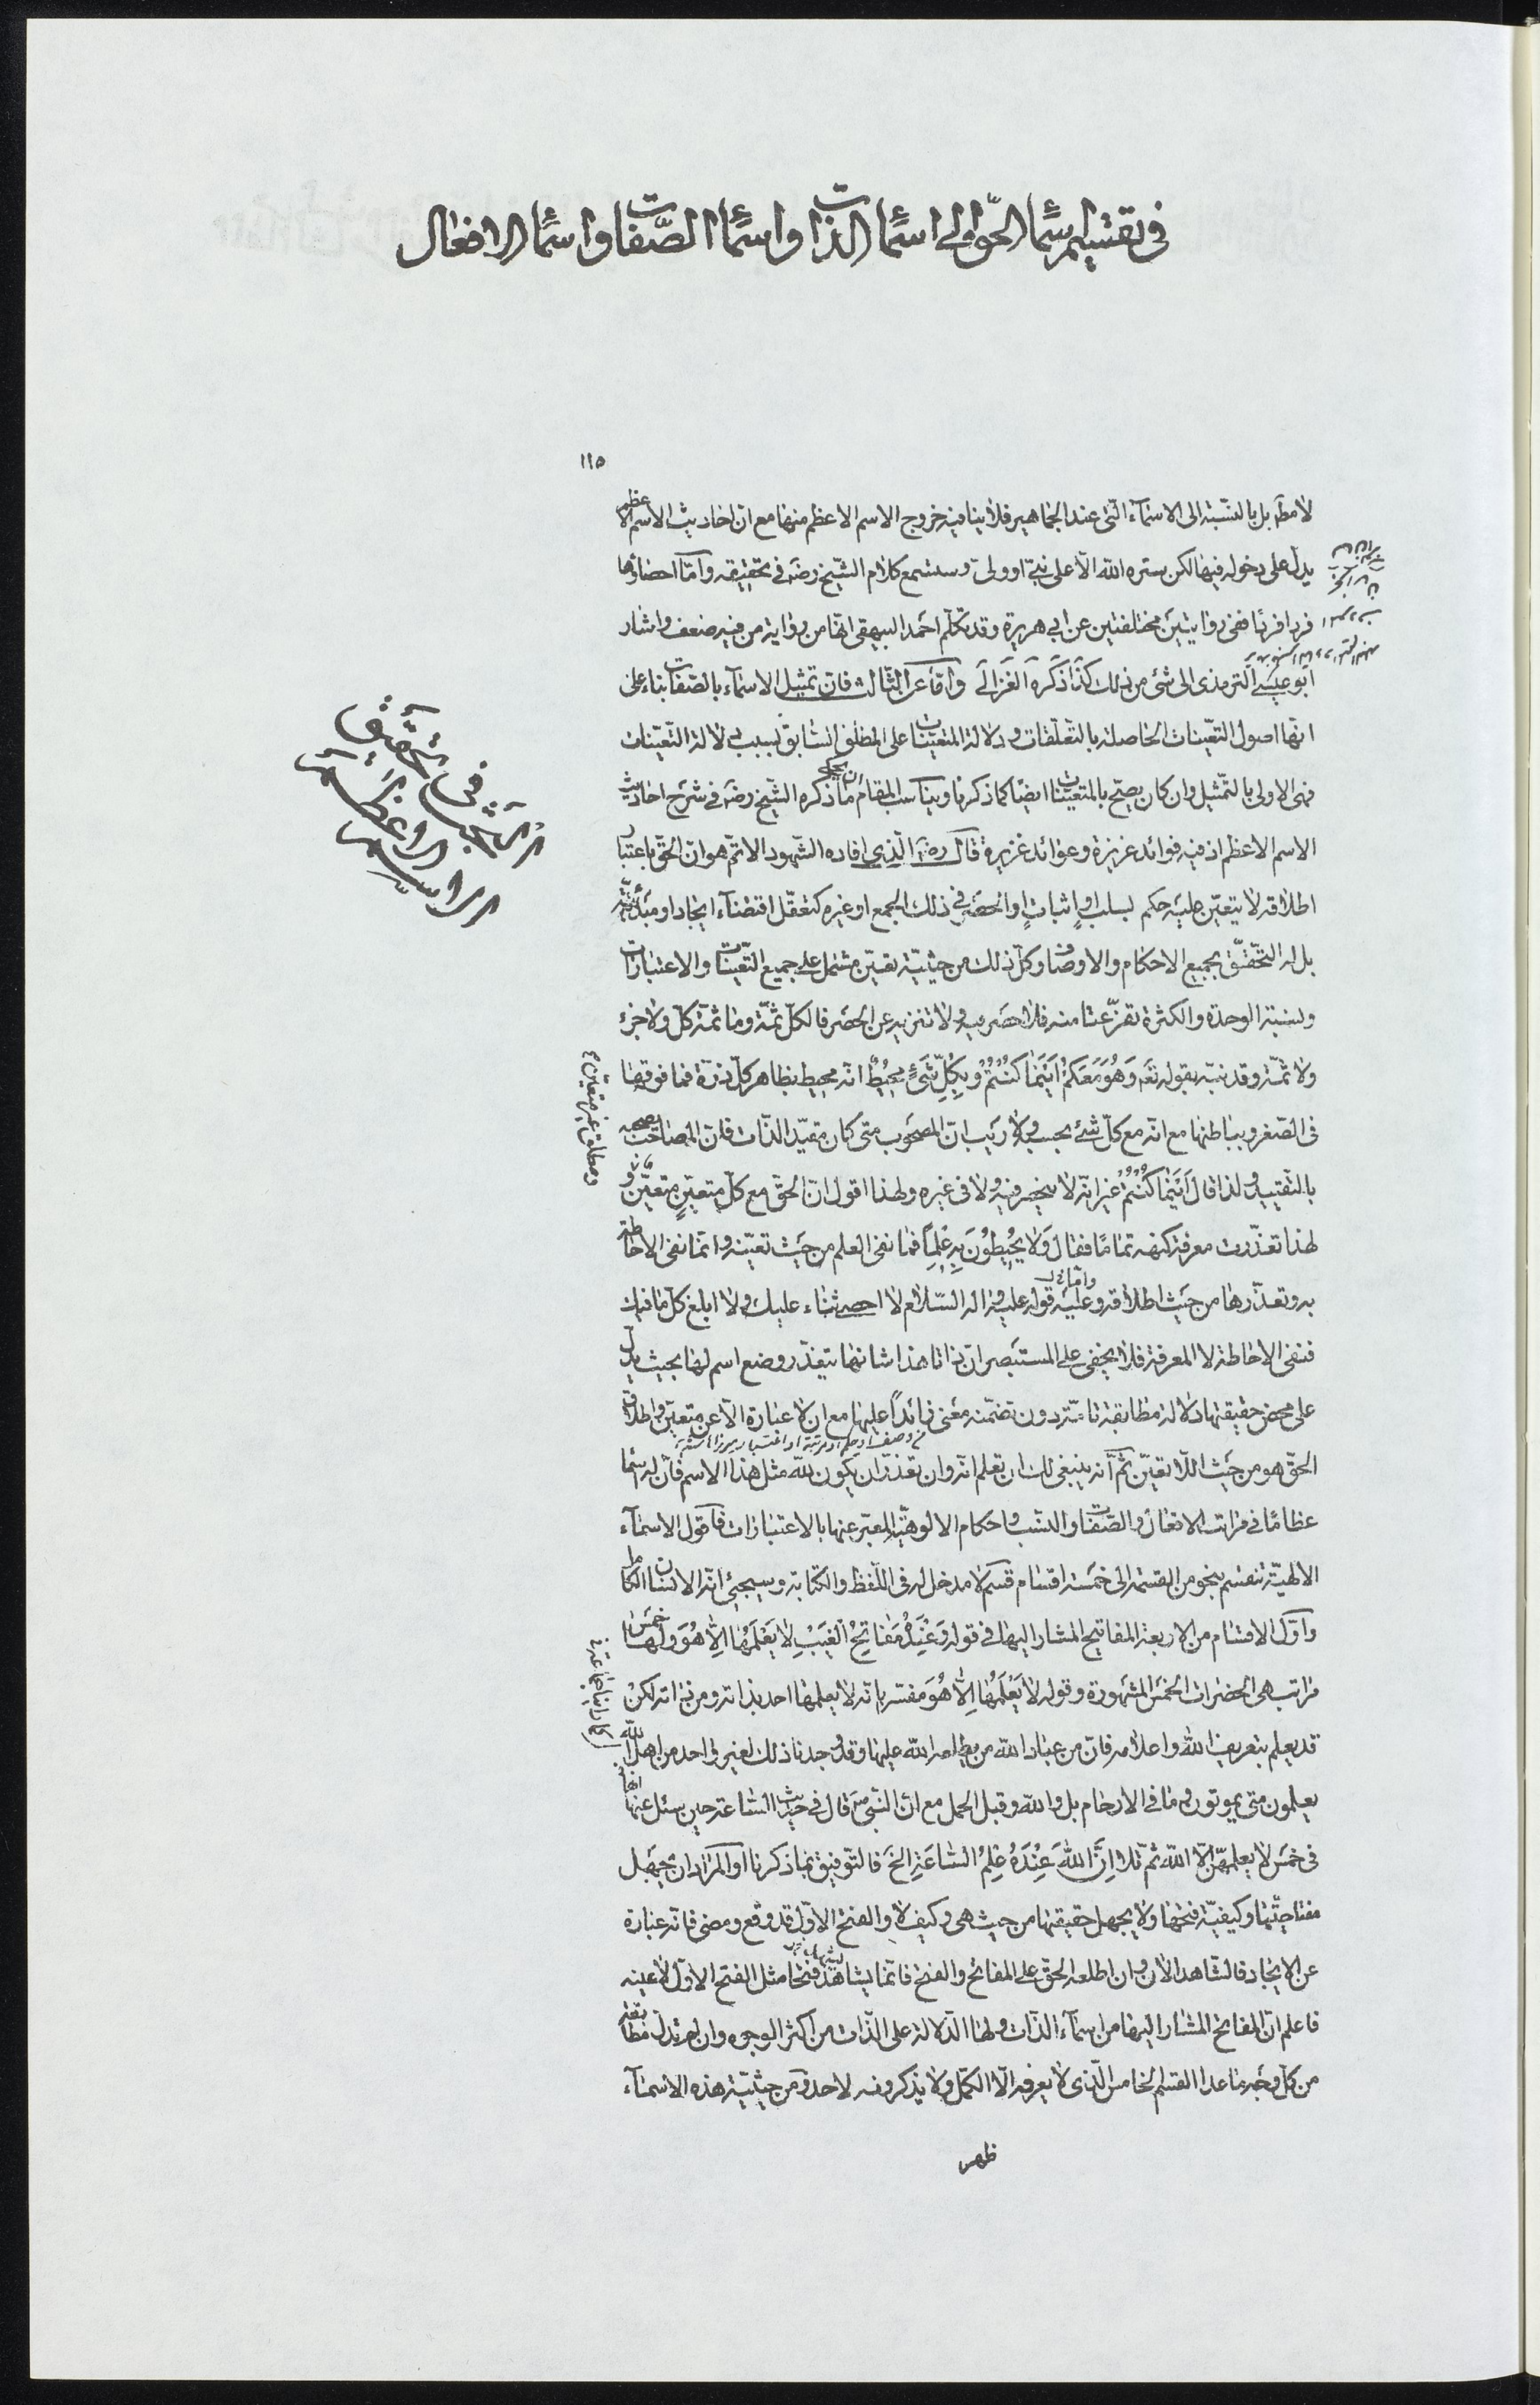 في تقسيم اسماء الحق الى اسماء الذات واسماء الصفات واسماء الافعال
١١٥
لا مطلقا بل بالنسبة الى الاسماء التى عند الجماهير فلا ينافيه خروج الاسم الاعظم منها مع ان احاديث الاسم الاعظم
يدل على دخوله فيها لكن ستره الله الا على نبىّ او ولىّ وستسمع كلام الشيخ رضه فى تحقيقه وامّا احصاؤها
فردا فردًا ففى روايتين مختلفتين عن ابى هريرة وقد تكلّم احمد البيهقى انها من رواية من فيه ضعف واشار
ابو عيسى الترمذى الى شئ من ذلك كذا ذكره الغزالى وامّا عن الثالث فان تمثيل الاسماء بالصفات بناء على
انها اصول التعيّنات الحاصلة بالتعلّقات ودلالة المتعيّنات على المطلق السابق بسبب دلالة التعيّنات
فهى الاولى بالتمثيل وان كان يصحّ بالمتعيّنات ايضًا كما ذكرنا ويناسب المقام ان يحكى ما ذكره الشيخ رضه فى شرح احاديث
الاسم الاعظم اذ فيه فوائد عزيزة وعوائد غزيرة قال رضه الّذى افاده الشهود الاتمّ هو انّ الحق باعتبار
اطلاقه لا يتعيّن عليه حكم بسلب او اثبات او الحصر فى ذلك الجمع او غيره كتعقّل اقتضاء ايجاد او مبدئيّة
بل له التحقّق بجميع الاحكام والاوصاف وكلّ ذلك من حيثيّة تعيّن مشتمل على جميع التعيّنات والاعتبارات
ونسبة الوحدة والكثرة تفرّعتا منه فلا حصر فيه ولا تنزيه عن الحصر فالكلّ ثمّة وما ثمّة كلّ ولا جزء
ولا ثمّة وقد نبّه بقوله تعه وَهُوَ مَعَكُمْ اَيْنَمَا كُنْتُمْ وبِكُلِّ شَيْءٍ مُحِيطٌ انّه محيط بظاهر كلّ ذرّة فما فوقها
فى الصّغر وبباطنها مع انه مع كلّ شئ بحسبه ولا ريب انّ المصحوب متى كان مقيّد الذّات فانّ المصاحب يصحبه
بالتقييد ولذا قال اينما كنتم غير انه لا ينحصر فيه ولا فى غيره ولهذا اقول انّ الحقّ مع كلّ متعيّنٍ متعيّنٌ و
لهذا تعذّرت معرفة كنهه تمامًا فقال وَلا يُحِيطُونَ بِهِ عِلْمًا فما نفى العلم من حيث تعيّنه وانما نفى الاحاطة
به وتعذّرها من حيث اطلاقه وعليه قوله عليه واله السّلام لا احصى ثناء عليك ولا ابلغ كلّ ما فيك
فنفى الاحاطة لا المعرفة فلا يخفى على المستبصر انّ ذاتا هذا شانها يتعذّر وضع اسم لها بحيث يدلّ
على محض حقيقتها دلالة مطابقة تامّة دون تضمّنه معنى زائداً عليها مع ان لا عبارة الّا عن متعيّن واطلاق
من وصف او حكم او مرتبة او اعتبار
الحقّ هو من حيث اللّا تعيّن ثمّ انه ينبغى لك ان تعلم انه وان تعذّر ان يكون للّه مثل هذا الاسم فانّ له اسماء
عظامًا فى مراتب الافعال والصفات والنسب واحكام الالوهيّة المعبّر عنها بالاعتبارات فاقول الاسماء
الالهيّة تنقسم بنحو من القسمة الى خمسة اقسام قسم لا مدخل له فى اللّفظ والكتابة وسيجئ انّه الانسان الكامل
واوّل الاقسام من الاربعة المفاتيح المشار اليها فى قوله وَعِنْدَهُ مَفَاتِحُ الْغَيْبِ لا يَعْلَمُهَا اِلّا هُوَ ولها خمس
مراتب هى الحضرات الخمس المشهورة وقوله لا يَعْلَمُهَا اِلّا هُوَ مفسّر بانه لا يعلمها احد بذاته ومن ذاته لكن
قد يعلم بتعريف الله واعلامه فانّ من عباد الله من يطلعه الله عليها وقد وجدنا ذلك لغير واحد من اهل الله
يعلمون متى يموتون وما فى الارحام بل والله وقبل الحمل مع انّ النّبى صم قال فى حديث السّاعة حين سئل عنها انها
فى خمس لا يعلمهنّ الّا الله ثمّ تلا اِنَّ اللهَ عِنْدَهُ عِلْمُ السَّاعَةِ الخ فالتّوفيق بما ذكرنا او المراد ان يجهل
مفتاحيّتها وكيفيّة فتحها ولا يجهل حقيقتها من حيث هى وكيف لا والفتح الاوّل قد وقع ومضى فانه عبارة
عن الايجاد فالشاهد الان وان اطلعه الحقّ على المفاتح والفتح فانّما يشاهد فتحا مثل الفتح الاوّل لا عينه
فاعلم انّ المفاتح المشار اليها من اسماء الذّات ولها الدّلالة على الذّات من اكثر الوجوه وان لم تدل مطابقة
من كلّ وجه ما عدا القسم الخامس الّذى لا يعرفه الّا الكمّل ولا يذكرونه لاحد ومن حيثيّة هذه الاسماء
ظهر
البحث فى تحقيق
الاسم الاعظم
ومطلق غير متعيّن